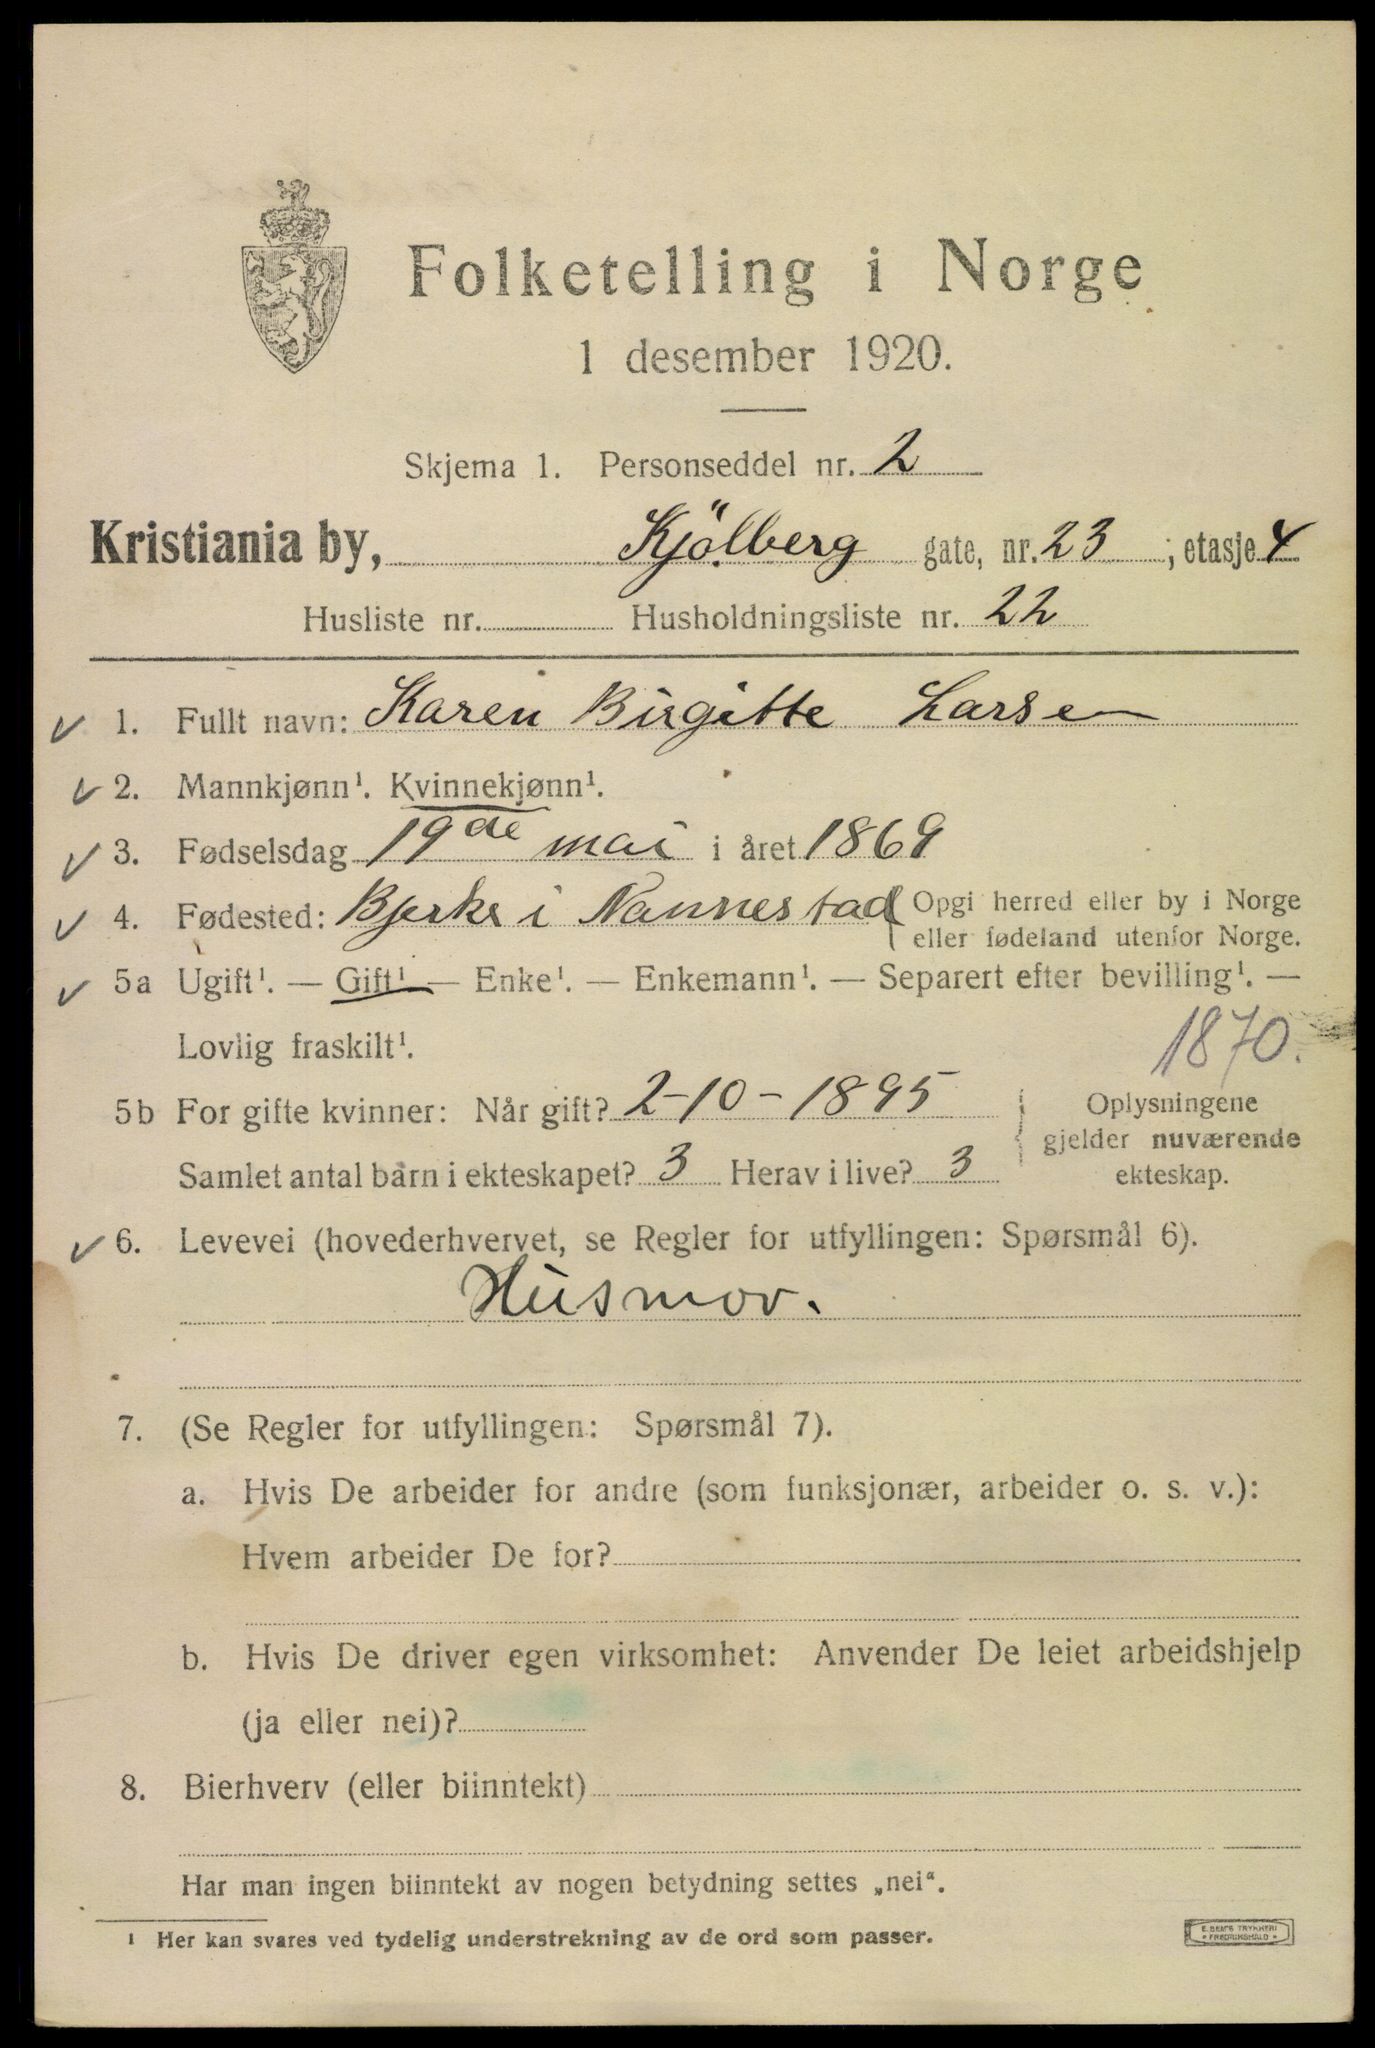 Folketelling i Norge
1 desember 1920.
Skjema 1. Personseddel nr. 2
Kristiania by, Kjölberg gate, nr. 23 ; etasje 4
Husliste nr. Husholdningsliste nr. 22
1. Fullt navn: Karen Birgitte Larsen
2. Mannkjønn¹. Kvinnekjønn¹.
3. Fødselsdag 19de mai i året 1869
4. Fødested: Bjerke i Nannestad { Opgi herred eller by i Norge
eller fødeland utenfor Norge.
5a Ugift¹. — Gift¹ — Enke¹. — Enkemann¹. — Separert efter bevilling¹. —
Lovlig fraskilt¹. 1870.
5b For gifte kvinner: Når gift? 2-10-1895 Oplysningene
gjelder nuværende
Samlet antal barn i ekteskapet? 3 Herav i live? 3 ekteskap.
6. Levevei (hovederhvervet, se Regler for utfyllingen: Spørsmål 6).
Husmor.
7. (Se Regler for utfyllingen: Spørsmål 7).
a. Hvis De arbeider for andre (som funksjonær, arbeider o. s. v.):
Hvem arbeider De for?
b. Hvis De driver egen virksomhet: Anvender De leiet arbeidshjelp
(ja eller nei)?
8. Bierhverv (eller biinntekt)
Har man ingen biinntekt av nogen betydning settes „nei“.
¹ Her kan svares ved tydelig understrekning av de ord som passer.
E. SEM'S TRYKKERI
• FREDRIKSHALD •